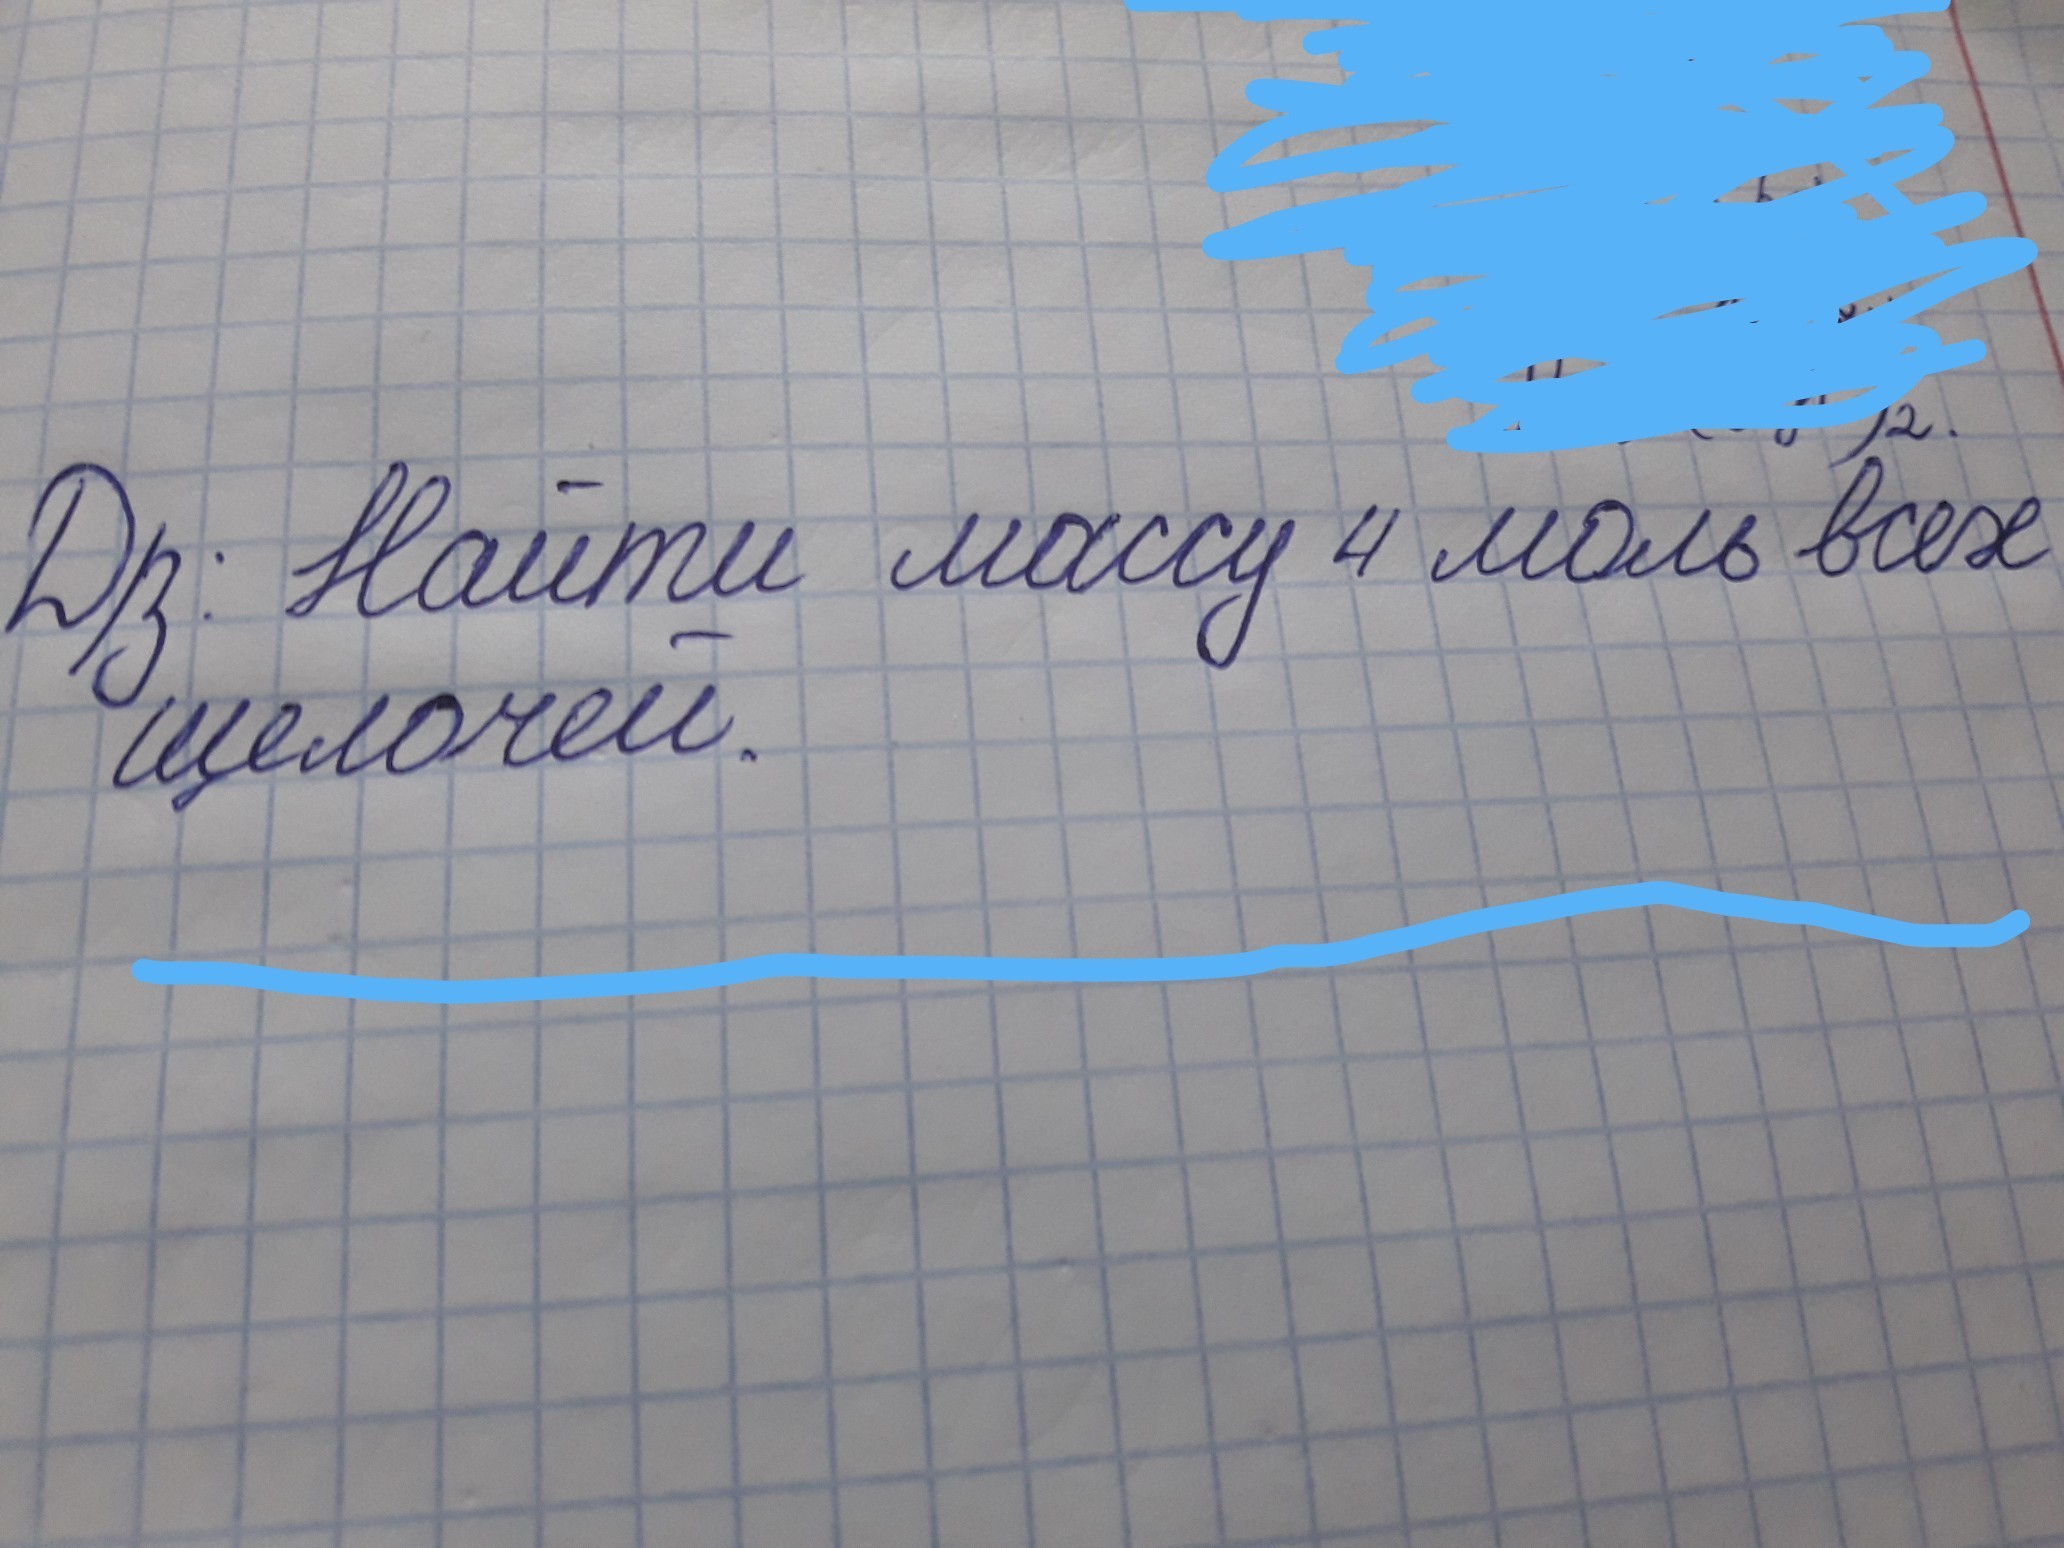 )2.
Дз: Найти массу 4 моль всех
щелочей.